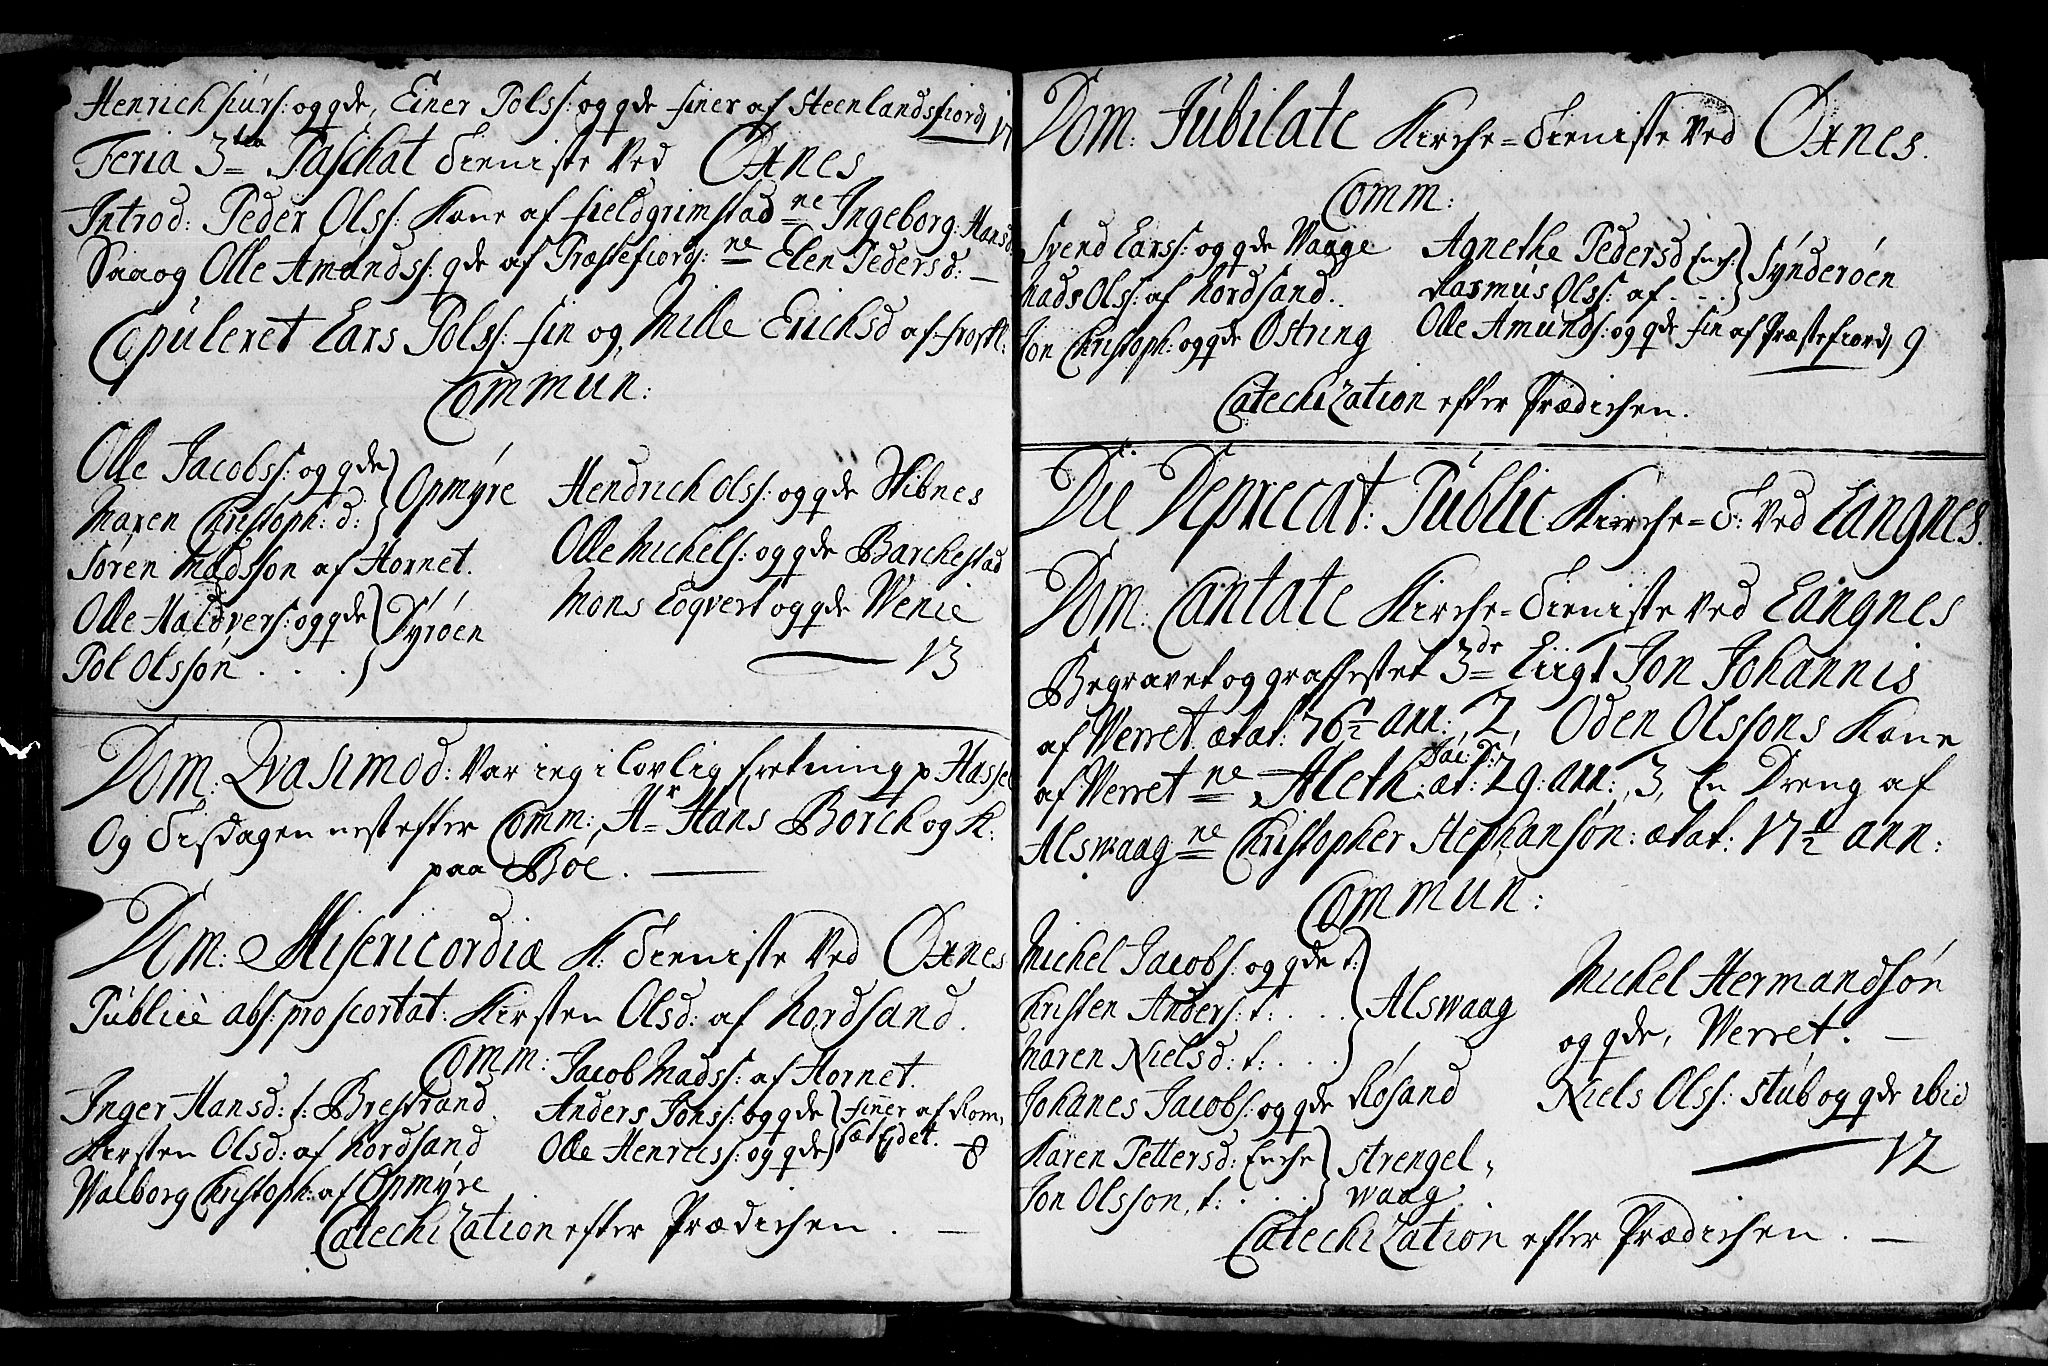 Henrich siurs: og qde, Einer Polss: og qde finer af Steenlandsfiord, 17
Feria 3tia Paschat dieniste ved Öxnes
Introd: Peder Olss: Kone af fieldgrimstad ne Ingeborg Hansd:
Saa og Olle Amundss: qde af Præstefiord: ne Elen Pedersd: —
Copuleret Lars Polss: fin og Mille Erichsd af
Commun:
Olle Jacobss: og qde } Opmÿre
Maren Christoph: d:
Sören Madsson af Hornet.
Olle Haldvers: og qde } Dÿröen
Pol Olssön . . . .
Hendrich Olss: og qde Stibnes
Olle Michels: og qde Barchestad
Mons Eqvert og qde Wenie
13
Dom: Qvasimod: var ieg i lovlig forretning p Hassel
Og Tisdagen nest efter Comm: Hr Hans Borch og K:
paa Böe. —
Dom: Misericordiæ K: dieniste ved Öxnes
Publicè abs: pro scortat: Kirsten Olsd: af Nordsand.
Comm:
Inger Hansd: t: Brestrand.
Kirsten Olsd: af Nordsand
Walborg Christoph: af Opmÿre
Jacob Madss: af Hornet.
Anders Jonss: og qde } finer af Rom,
Olle Henricss: og qde } sæt Eidet. 8
Catechization efter Prædichen. —
Dom: Jubilate Kirche=dieniste ved Öxnes.
Comm:
Svend Larss: og qde Waage
Mads Olss: af Nordsand..
Jon Christoph: og qde Ostring
Agnethe Pedersd Enche } Sÿnderöen
Rasmus Olss: af . . .
Olle Amunds: og qde fin af Præstefiord, 9
Catechization efter Prædichen.
Die Deprecat: Public Kirche=d: ved Langnes.
Dom: Cantate Kirche=dieniste ved Langnes
Begravet og graffestet 3de Liig 1 Jon Johannis
af Werret ætat: 76½ ann:, 2, Oden Olssons Kone
af Werret ne Aleth æt: 29: ann:, 3, En Dreng af
Alswaag ne Christopher Stephansön: ætat: 17½ ann:
Commun:
Michel Jacobs: og qde t:
Christen Anders: t: . . . } Alswaag
Maren Nielsd: t: . . . .
Johanes Jacobs: og qde Rösand
Karen Pettersd: Enche } Strengel,
Jon Olsson, t: . . . . } waag.
Michel Hermandsön
og qde, Werret. —
Niels Olss: Stub og qde ibid
12
Catechization efter Prædichen. —